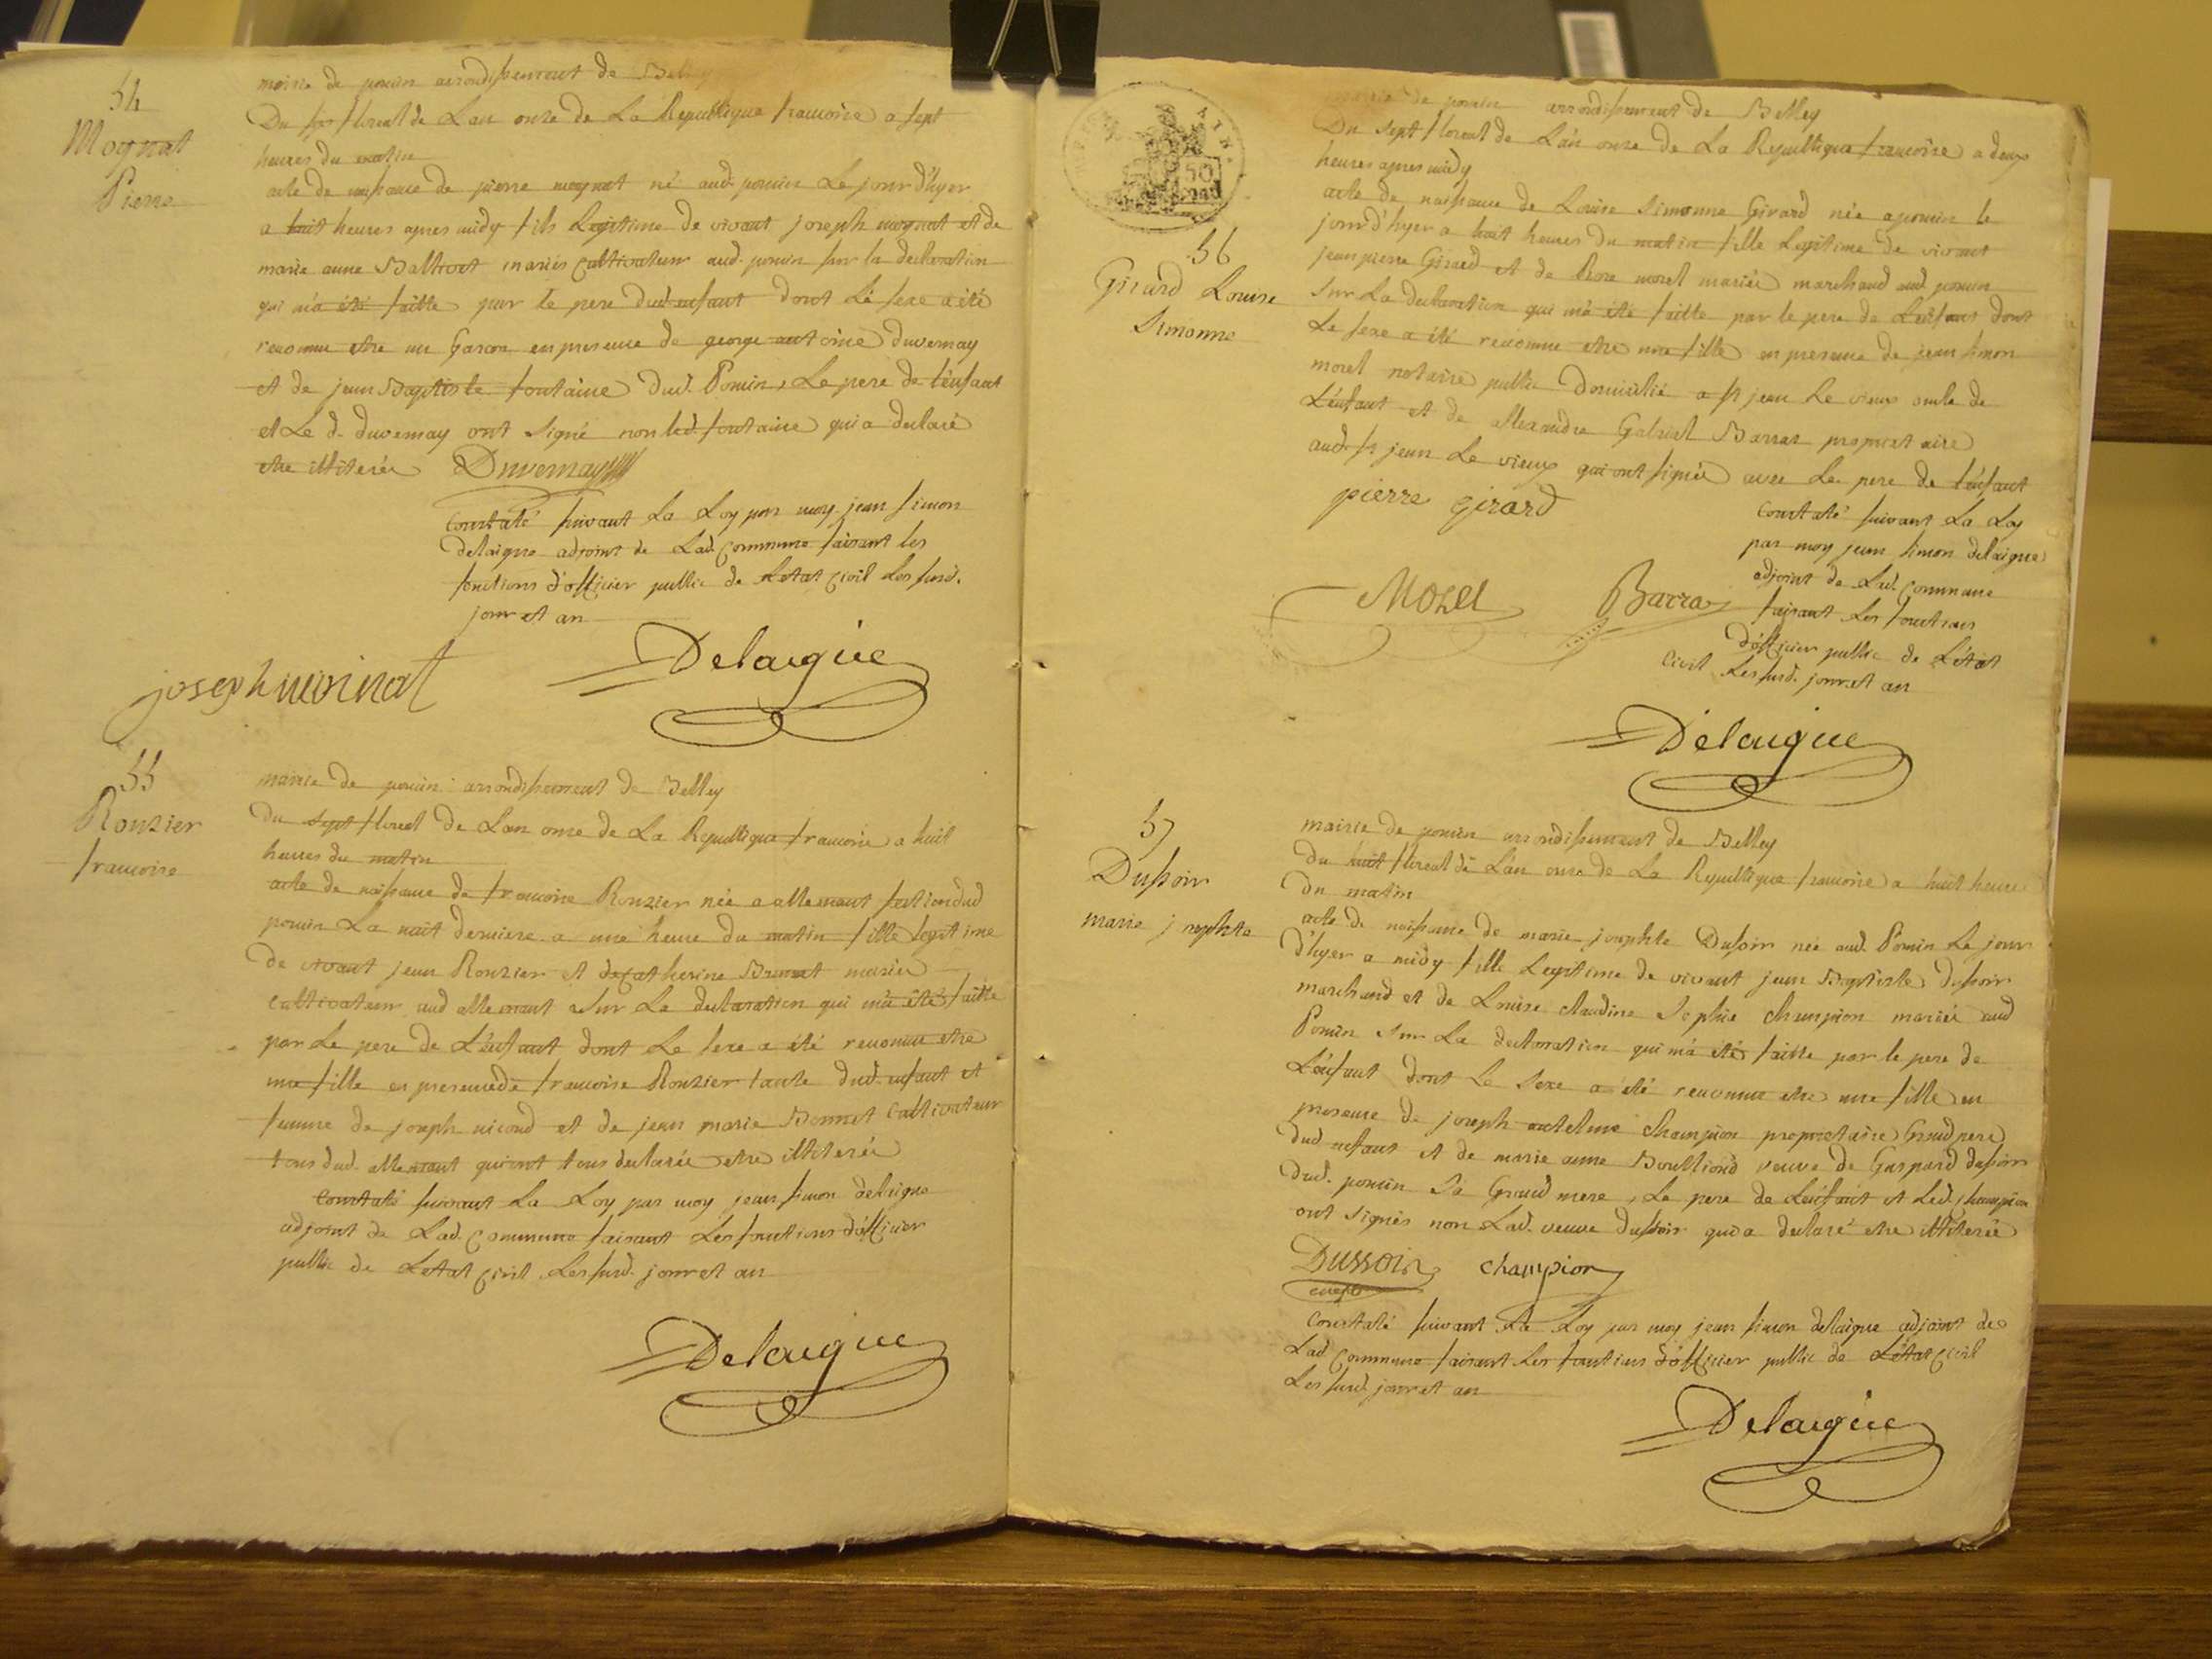 54
Mognat
Pierre
mairie de poncin arrondissement de Belley
Du six floreal de Lan onze de La Republique francoise a sept
heures du matin
acte de naissance de pierre mognat né aud. poncin Le jour d'hyer
a huit heures apres midy fils Legitime de vivant joseph mognat et de
marie anne Ballivet mariés Cultivateur aud. poncin sur la declaration
qui m'a été faitte par le pere dud. enfant dont Le sexe a été
reconnu etre un Garcon en presence de george antoine Duvernay
et de jean Baptiste fontaine dud. Poncin, Le pere de L'enfant
et Le d. duvernay ont signé non led. fontaine qui a declaré
etre illiterée Duvernay
Constaté suivant La Loy par moy jean simon
delaigue adjoint de Lad. Commune faisant les
fonctions d'officier public de Letat Civil Les susd.
jour et an
joseph moinat
Delaigue
55
Rouzier
francoise
mairie de poncin arrondissement de Belley
du sept floreal de Lan onze de La Republique francoise a huit
heures du matin
acte de naissance de francoise Rouzier née a allemant section dud
poncin La nuit derniere a une heure du matin fille legitime
de vivant jean Rouzier et de Catherine mariés
Cultivateur aud allemant sur La declaration qui m'a été faitte
par Le pere de L'enfant dont Le sexe a été reconnu etre
une fille en presence de francoise Rouzier tante dud. enfant et
femme de joseph nicoud et de jean marie Bonnet Cultivateur
tous dud. allemant qui ont tous declarée etre illiterée
Constaté suivant La Loy par moy jean simon delaigue
adjoint de Lad. Commune faisant Les fonctions d'officier
public de Letat Civil Les susd. jour et an
Delaigue
AIN.
50
56
Girard Louise
Simonne
mairie de poncin arrondissement de Belley
Du sept floreal de L'an onze de La Republique francoise a deux
heures apres midy
acte de naissance de Louise Simonne Girard née a poncin le
jour d'hyer a huit heures du matin fille Legitime de vivant
jean pierre Girard et de morel mariés marchand aud. poncin
sur La declaration qui m'a été faitte par le pere de L'enfant dont
Le sexe a été reconnu etre une fille en presence de jean simon
morel notaire public domicilié a st jean Le vieux oncle de
L'enfant et de allexandre Gabriel Barras proprietaire
aud. st jean Le vieux qui ont signée avec Le pere de L'enfant
pierre girard
Constaté suivant La Loy
par moy jean simon delaigue
adjoint de Lad. Commune
faisant Les fonctions
d'officier public de L'état
Civil Les susd. jour et an
Morel Barras
Delaigue
57
Dussoir
marie josephte
mairie de poncin arrondissement de Belley
Du huit floreal de L'an onze de La Republique francoise a huit heure
du matin
acte de naissance de marie josephte Dussoir née aud. Poncin Le jour
d'hyer a midy fille Legitime de vivant jean Baptiste dussoir
marchand et de Louise claudine Sophie champion mariée aud
Poncin sur La declaration qui m'a été faitte par le pere de
L'enfant dont Le Sexe a été reconnu etre une fille en
presence de joseph antelme champion proprietaire Grand pere
dud enfant et de marie anne veuve de Gaspard dussoir
dud. poncin sa Grand mere, Le pere de L'enfant et Led. Champion
ont signés non Lad. veuve dussoir qui a declaré etre illiterée
Dussoir champion
Constaté suivant La Loy par moy jean simon delaigue adjoint de
Lad Commune faisant Les fonctions d'officier public de L'état Civil
Les susd. jour et an
Delaigue